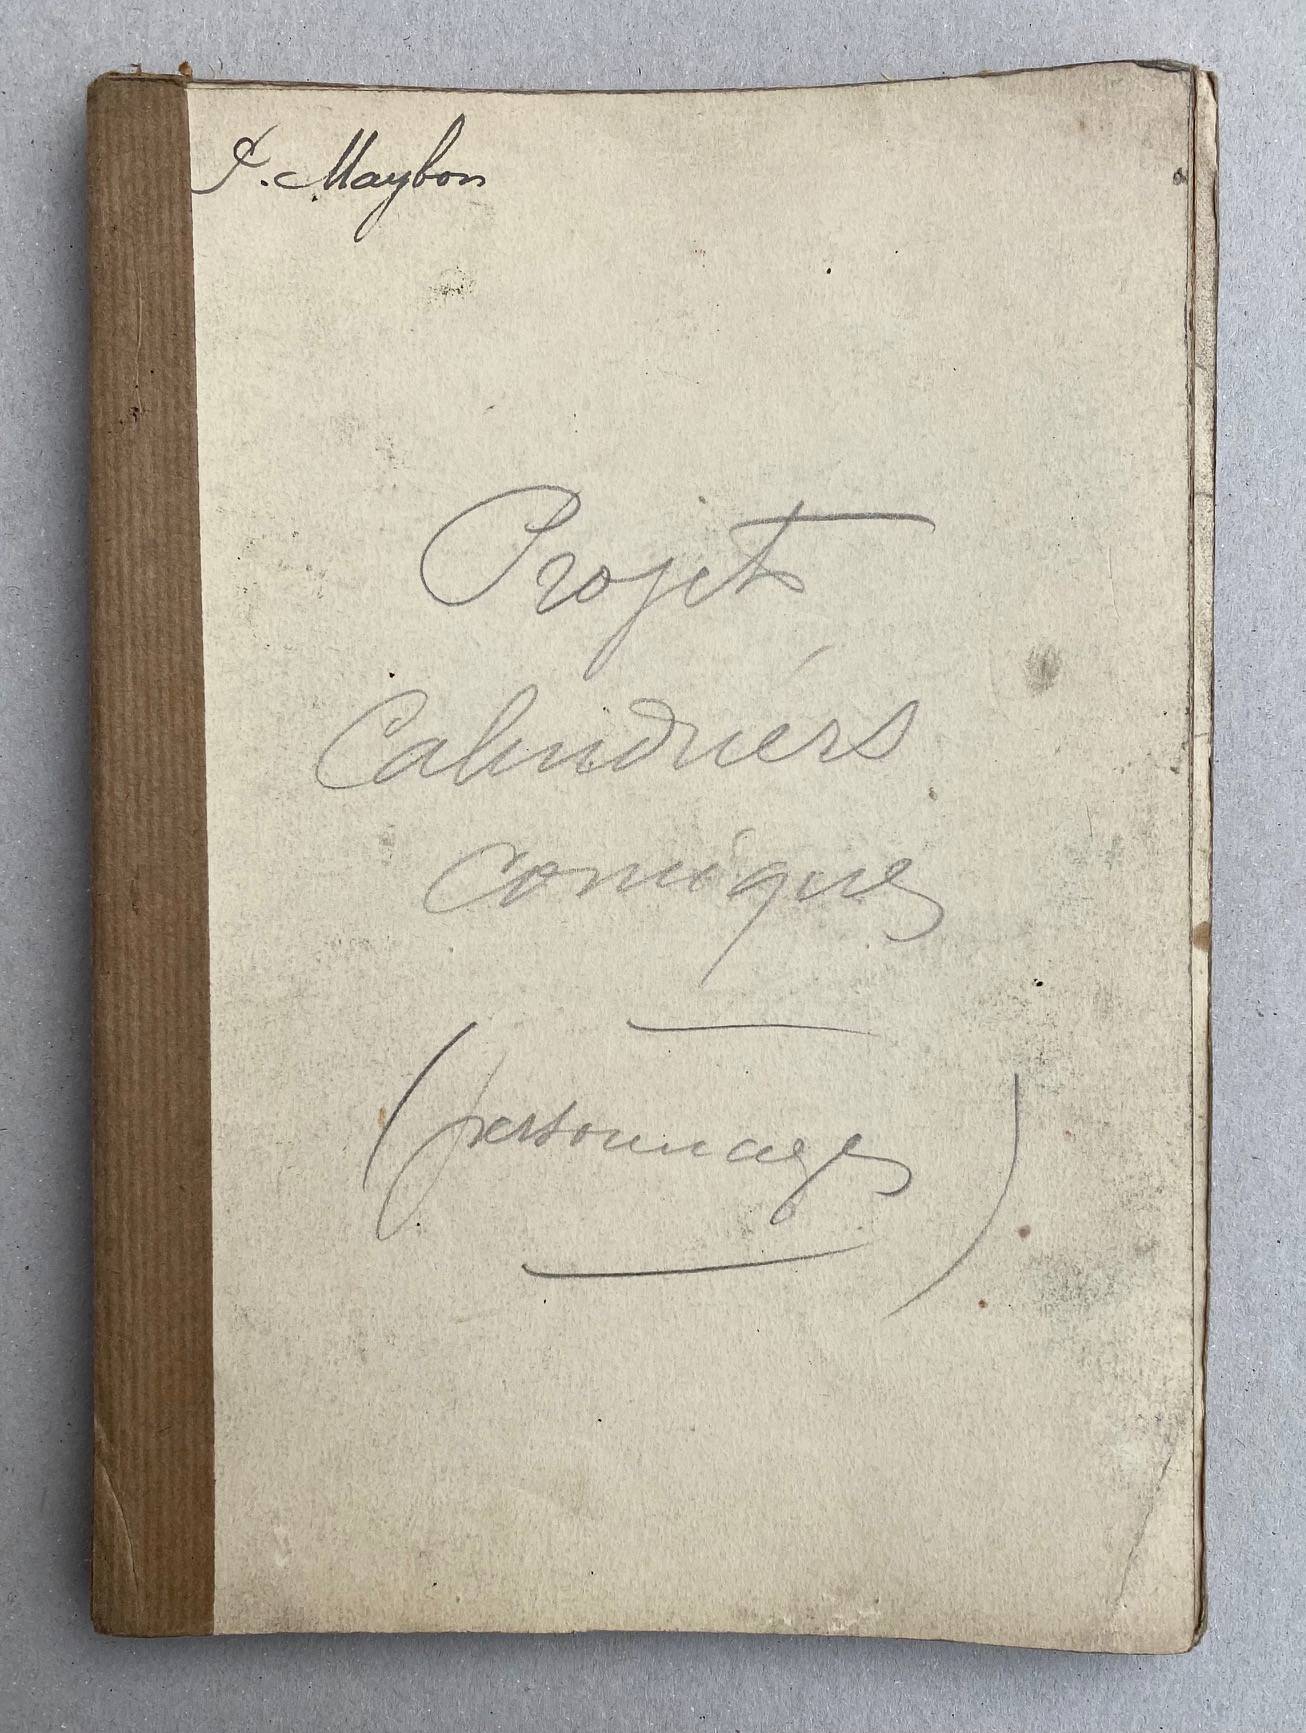 P. Maybon
Projets
Calendriers
comiques
(personnages)